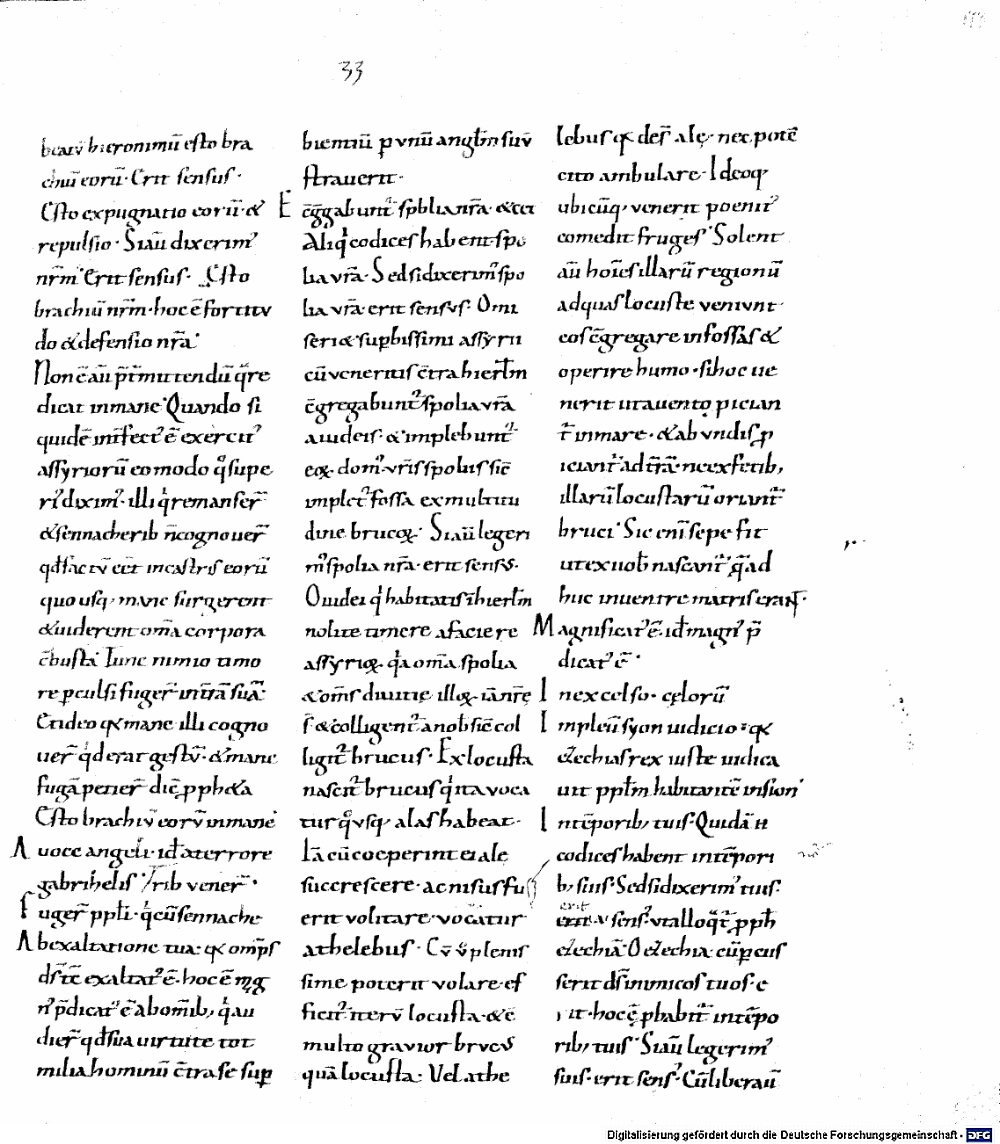 33
beatū hieronimū esto bra
chiū eorū· Erit sensus·
Esto expugnatio eorū· &
repulsio· Si aū dixerimꝰ
nr̄m Erit sensus· Esto
brachiū nr̄m· hoc ē fortitu
do & defensio nr̄a·
Non ē aū p̄t̄mittendū q̄re
dicat in mane· Quando si
quidē int̄fectꝰ ē exercitꝰ
assyriorū eo modo qͦ supe
riꝰ diximꝰ· illi qͥ remanser̄
& sennacherib n̄ cognouer̄
qd̄ factū eēt in castris eorū
quo usq; mane surgerent
& uiderent om̄a corpora
c̄busta· Tunc nimio timo
re perculsi fuger̄ in t̄rā suā·
Et ideo qꝫ mane illi cogno
uer̄ qͥd erat gestū· & mane
fugā petier̄ dic̄ ꝓph&a
Esto brachiū eorū in mane
A uoce angeli· id ē a terrore
gabrihelis
Fuger̄ ppl̄i· qͥ cū sennache
rib uener̄·
Ab exaltatione tua· qꝫ omp̄s
ds̄ exaltatꝰ ē· hoc ē mag
nꝰ p̄dicatꝰ ē ab omīb; qͥ au
dier̄ qd̄ sua uirtute tot
milia hominū c̄tra se sup
bientiū p unū angl̄m suū
strauerit·
Et c̄ggabunt᷑ spolia nr̄a· &cet
Aliqͥ codices habent spo
lia ur̄a· Sed si dixerimꝰ spo
lia ur̄a erit sensus· O mi
seri & supbissimi assyrii
cū ueneritis c̄tra hierlm̄
c̄gregabunt᷑ spolia ur̄a
a iudeis· & implebunt᷑
eoꝝ domꝰ ur̄is spoliis sic̄
implet᷑ fossa ex multitu
dine brucoꝝ· Si aū legeri
mꝰ spolia nr̄a· erit sensus·
O iudei qͥ habitatis ī hierlm̄
nolite timere a facie re
assyrioꝝ· qͥa om̄a spolia
& om̄s diuitię illoꝝ iā nr̄ę
s̄t & colligent᷑ a nob̄ sic̄ col
ligit᷑ brucus· Ex locusta
nascit᷑ brucus qͥ ita uoca
tur qͦ usq; alas habeat·
Nā cū coeperint ei ale
succrescere· ac nisus fu
erit volitare· vocatur
athelebus· Cū ū plenis
sime poterit volare· ef
ficit᷑ iterū locusta· & ē
multo gravior brucus
quā locusta· Vel athe
lebus qꝫ des̄ ale· nec potē
cito ambulare· Ideoq;
ubicūq; venerit poenitꝰ
comedit fruges· Solent
aū hoīes illarū regionū
ad quas locuste veniunt
eos c̄gregare in fossas &
operire humo· si hoc ue
nerit ut a uento ꝓician
t᷑ in mare· & ab undis ꝓ
iciant᷑ ad t̄rā· nec ex fetib;
illarū locustarū oriant᷑
bruci· Sic enī sepe fit
ut ex uob̄ nascant᷑ q̄ ad
huc in uentre matris erant·
Magnificatꝰ ē· id ē magnꝰ p̄
dicatꝰ ē·
In excelso· cęlorū
Impleuit syon iudicio· qꝫ
ezechias rex iuste iudica
uit ppl̄m habitantē in sion
In tēporib; tuis· Quidā ū
codices habent in tēpori
b; suis· Sed si dixerimꝰ tuis·
erit
erit sensꝰ· ut alloqͣt᷑ ꝓph̄
ezechiā· O ezechia· cū pcus
serit ds̄ inimicos tuos· e
rit· hoc ē ꝓphabit᷑ in tēpo
rib; tuis· Si aū legerimꝰ
suis· erit sensꝰ· Cū liberau
Digitalisierung gefördert durch die Deutsche Forschungsgemeinschaft - DFG